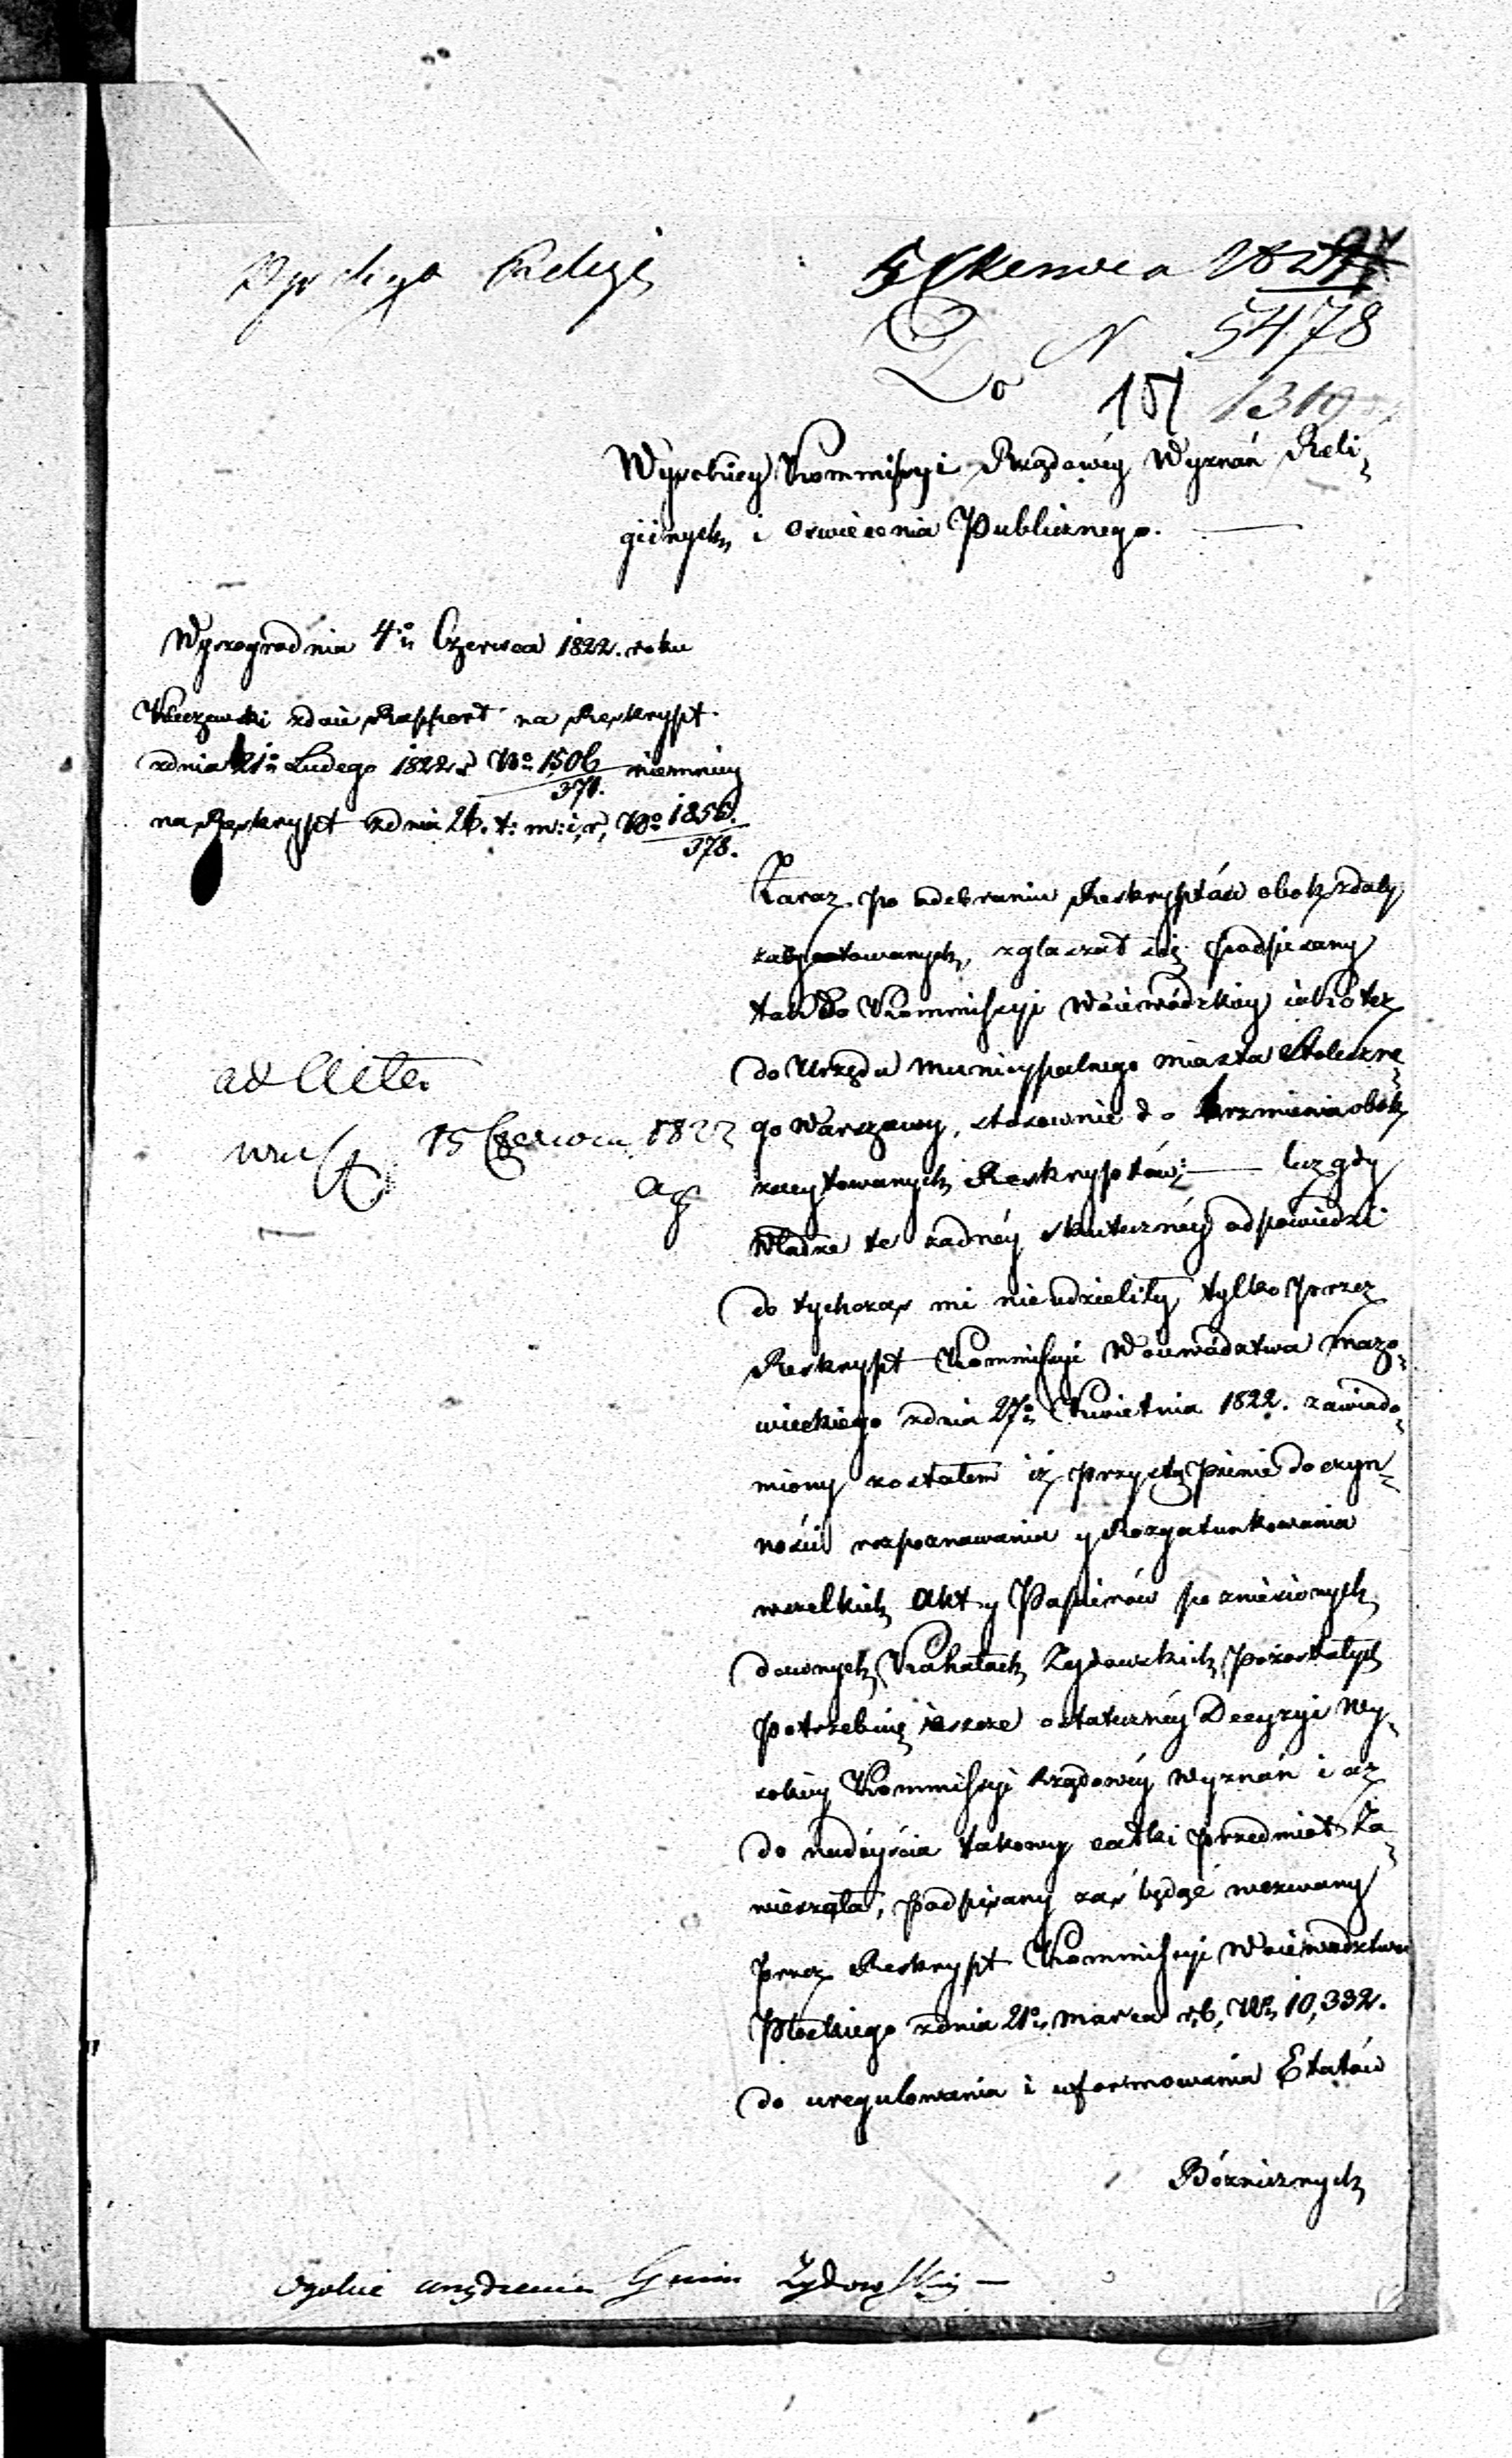 5 Czerwca 1822
Do N 5478
151 1319
Wysokiey Kommissyi Rządowéy Wyznań Reli„
giinych i Oswiecenia Publicznego.
Wyszogrod nia 4º Czerwca 1822. roku
zdaie Rapport na Reskrypt
zdnia 21º Ludego 1822 r Nº 1506/371. niemniey
na Reskrypt zdnia 26. t: m: i, r, Nº 1856./378.
Zaraz po odebraniu Reskryptów obok zdaty
zacytowanych, zgłaszał się podpisany
tak do Kommissyi Woiewódzkiey iako też
do Urzędu Municypalnego miasta Stołeczne„
go Warszawy, stosownie do brzmienia obok
zacytowanych Reskryptów; — lecz gdy
Władze te żadnéy skutecznéy odpowiedzi
do tychczas mi nie udzieliły, tylko przez
Reskrypt Kommissyi Woiewództwa Mazo„
wieckiego zdnia 27º Kwietnia 1822. zawiado„
miony zostałem iż przystąpienie do czyn„
ności rozpoznawania y Rozgatunkowania
wszelkich Akt y Papierów po zniesionych
dawnych Kahałach Żydowskich pozostałych
potrzebuię ieszcze ostatecznéy Decyzyi Wy„
sokiey Kommissyi Rządowéy Wyznań i aż
do nadéyścia takowey całki przedmiot Za„
wieszęła, podpisany zaś będąc wezwany
przez Reskrypt Kommissyi Woiewodztwa
Płockiego zdnia 21º Marca r, b, Nº 10,332.
do uregulowania i uformowania Etatów
Bóżnicznych
ad Acta
15 Czerwca 1822
Ogolne urządzenia Gmin Żydowskich —